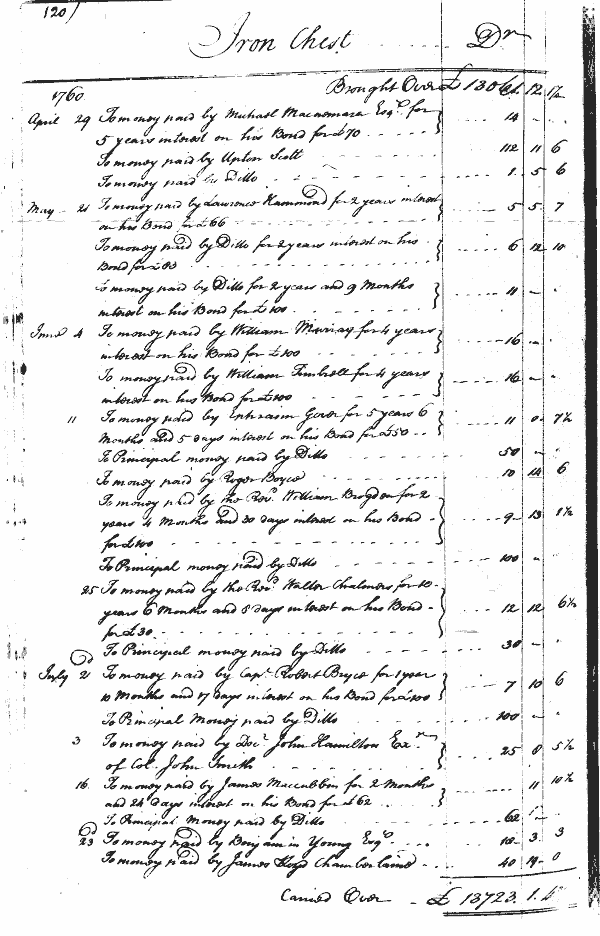 120)
Iron Chest Dr
1760 Brought Over £ 12 1½
April 29 To money paid by Michael Macnemara Esqr. for
5 years interest on his Bond for £70 14 - -
To money paid by Upton Scott 112 11 6
To money paid by Ditto 1 5 6
May 21 To money paid by Lawrence Hammond for 2 years interest
on his Bond for £66 5 5 7
To money paid by Ditto for 2 years interest on his
Bond for £83 6 12 10
To money paid by Ditto for 2 years and 9 Months
interest on his Bond for £100 11 - -
June 4 To money paid by William Murray for 4 years
interest on his Bond for £100 16 - -
To money paid by William Timbrell for 4 years
interest on his Bond for £100 16 - -
11 To money paid by Ephraim Gover for 5 years 6
Months and 5 days interest on his Bond for £50 11 0 7½
To Principal money paid by Ditto 50 - -
To money paid by Roger Boyce 10 14 6
To money paid by the Revd. William Brogden for 2
years 4 Months and 30 days interest on his Bond
for £100 9 13 1½
To Principal money paid by Ditto 100 - -
25 To money paid by the Revd. Walter Chalmers for 10
years 6 Months and 8 days interest on his Bond
for £30 12 12 6½
To Principal money paid by Ditto 30 - -
July 2d To money paid by Capt. Robert Bryce for 1 year
10 Months and 17 days interest on his Bond for £100 7 10 6
To Principal Money paid by Ditto 100 - -
3 To money paid by Doc. John Hamilton Exr.
of Col. John Smith 25 8 5½
16 To money paid by James Maccubbin for 2 Months
and 24 days interest on his Bond for £62 11 10½
To Principal Money paid by Ditto 62 - -
23d To money paid by Benjamin Young Esqr. 18 3 3
To money paid by James Lloyd Chamberlaine 40 19 0
Carried Over £ 13723. 1.